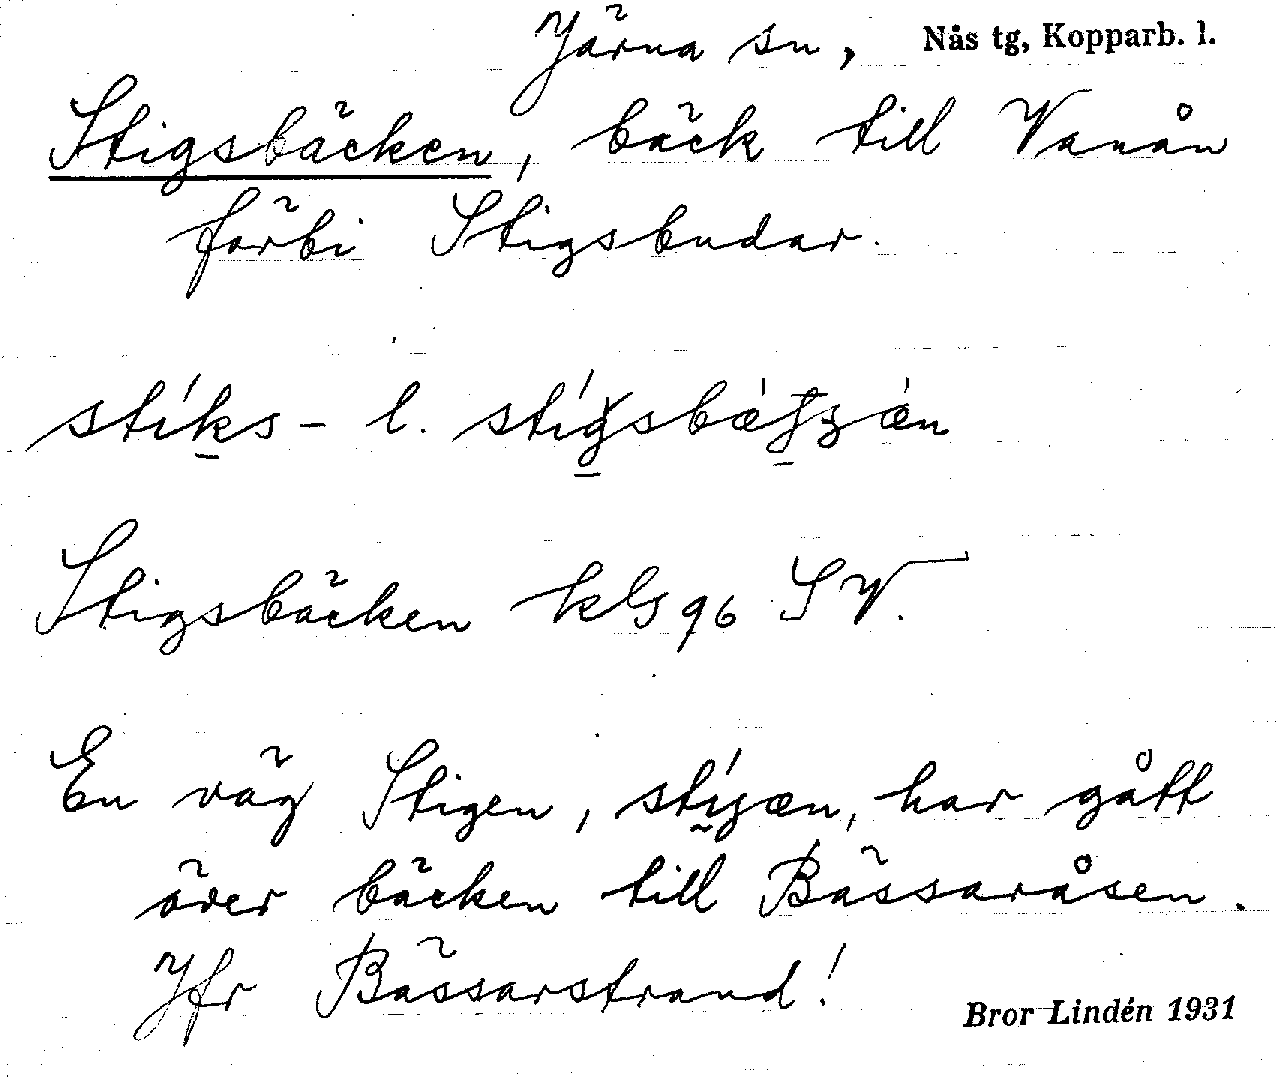 Järna sn, Nås tg, Kopparb. l.
Stigsbäcken, bäck till Vanån
förbi Stigsbudar.
stíks- l.
Stigsbäcken kbl 96 SV.
En väg Stigen, har gått
över bäcken till Bässaråsen.
Jfr Bässarstrand!
Bror Lindén 1931